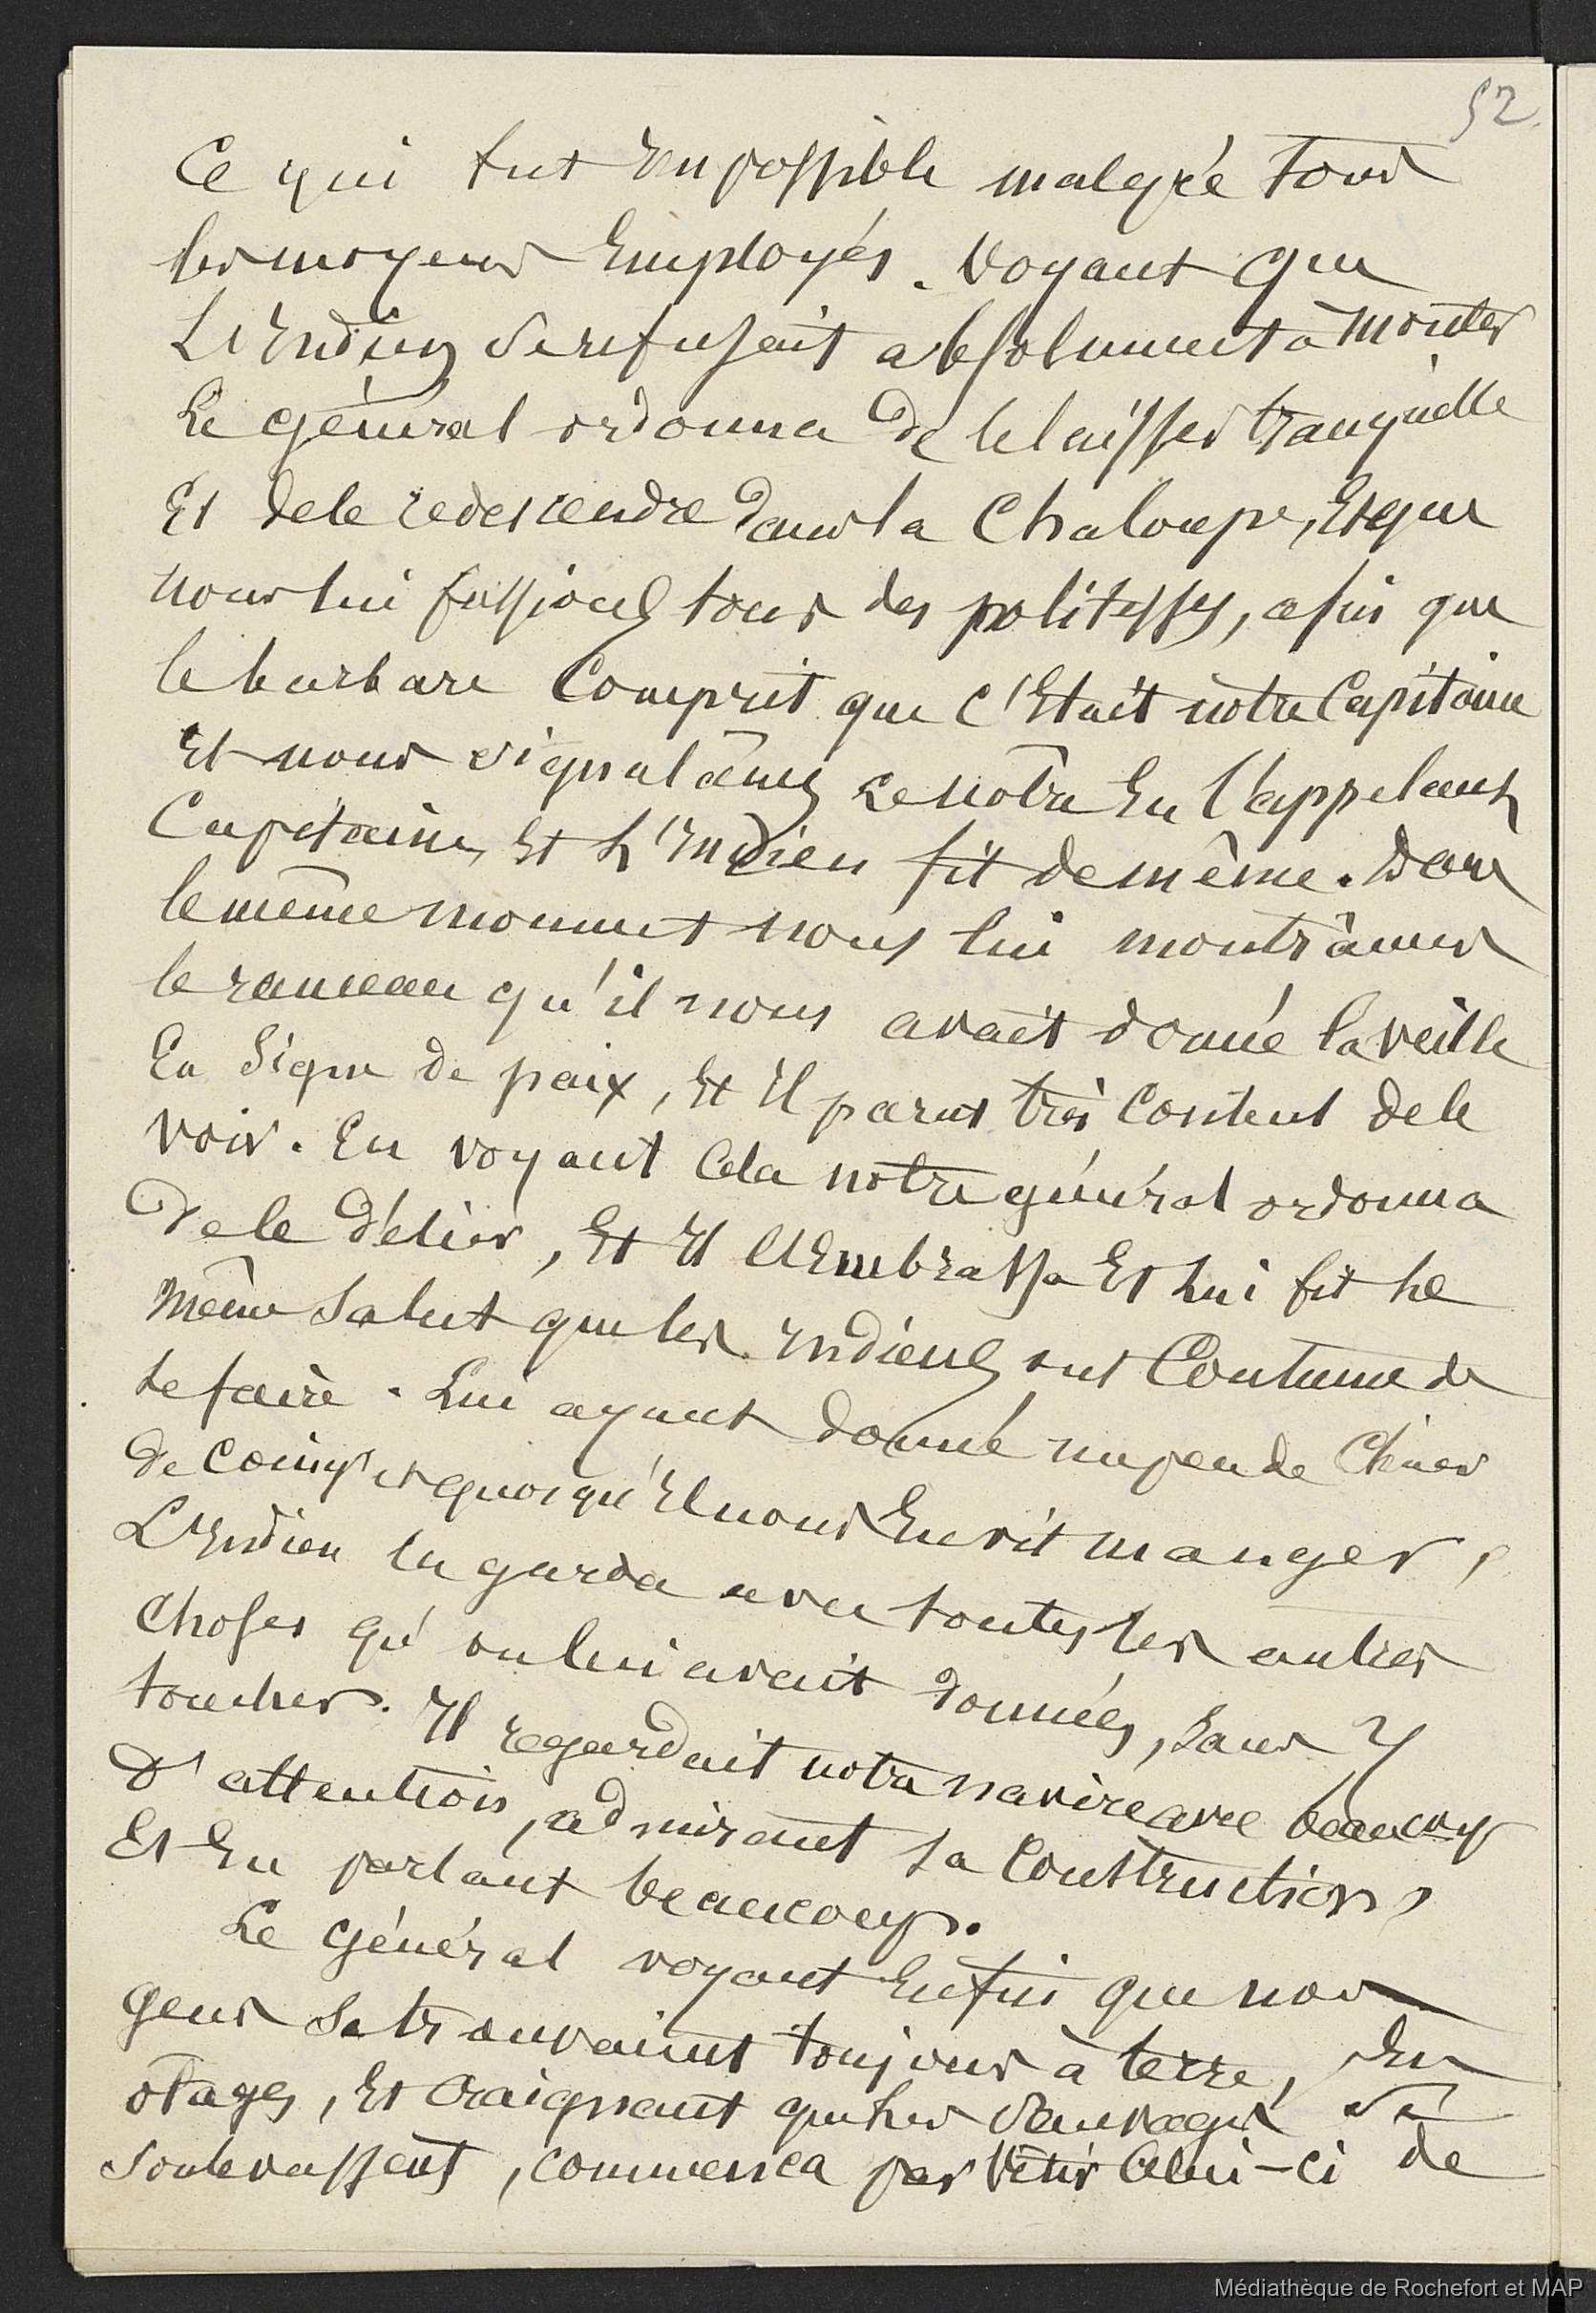 52.
Ce qui fut Impossible malgré tous
les moyens Employés. Voyant que
L'Indien se refusait absolument à monter
Le général ordonna de le laisser tranquille
Et de le redescendre dans la Chaloupe, Et que
nous lui fassions tous des politesses, afin que
le barbare Comprit que c'Etait notre Capitaine
Et nous signalâmes Le nôtre En l'appelant
Capitaine, Et L'Indien fit de même. Dans
le même moment nous lui montrâmes
le rameau qu'il nous avait donné la veille
En Signe de paix, Et Il parut très Content de le
voir. En voyant Cela notre général ordonna
De le Délier, Et Il l'Embrassa Et Lui fit Le
Même Salut que les Indiens ont Coutume de
Le faire. Lui ayant donné un peu de Chair
de Coings et quoiqu'Il nous En vit manger,
L'Indien la garda avec toutes les autres
Choses qu'on lui avait Données, Sans Y
toucher. Il regardait notre navire avec beaucoup
D'attention, admirant sa Construction,
Et En parlant beaucoup.
Le Général voyant Enfin que nos
gens Se trouvaient toujours à terre, En
ôtages, Et Craignant que Les Sauvages Se
Soulevassent, commença par Vêtir Celui-ci de
Médiathèque de Rochefort et MAP